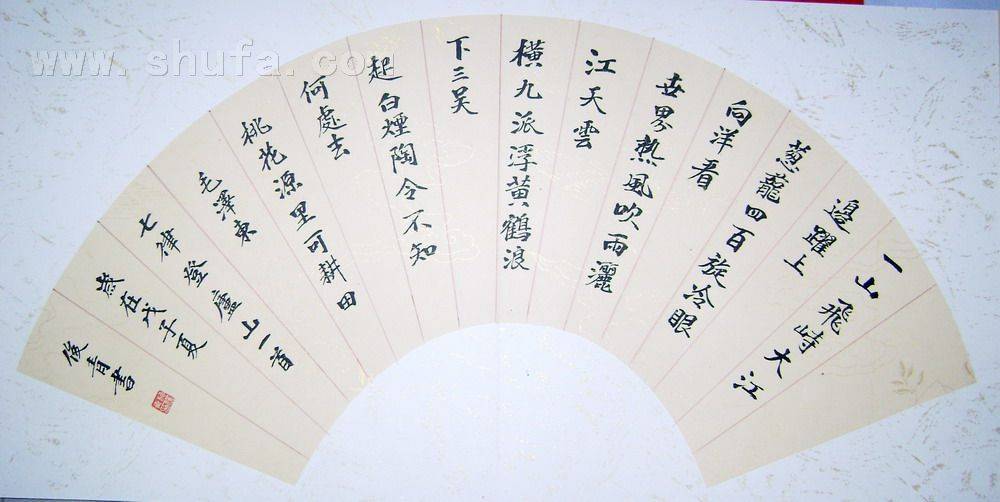 www.shufa.com
一山飛峙大江
邊躍上
葱蘢四百旋冷眼
向洋看
世界熱風吹雨灑
江天雲
橫九派浮黃鶴浪
下三吳
起白煙陶令不知
何處去
桃花源里可耕田
毛澤東
七律登廬山一首
歲在戊子夏
俊青書